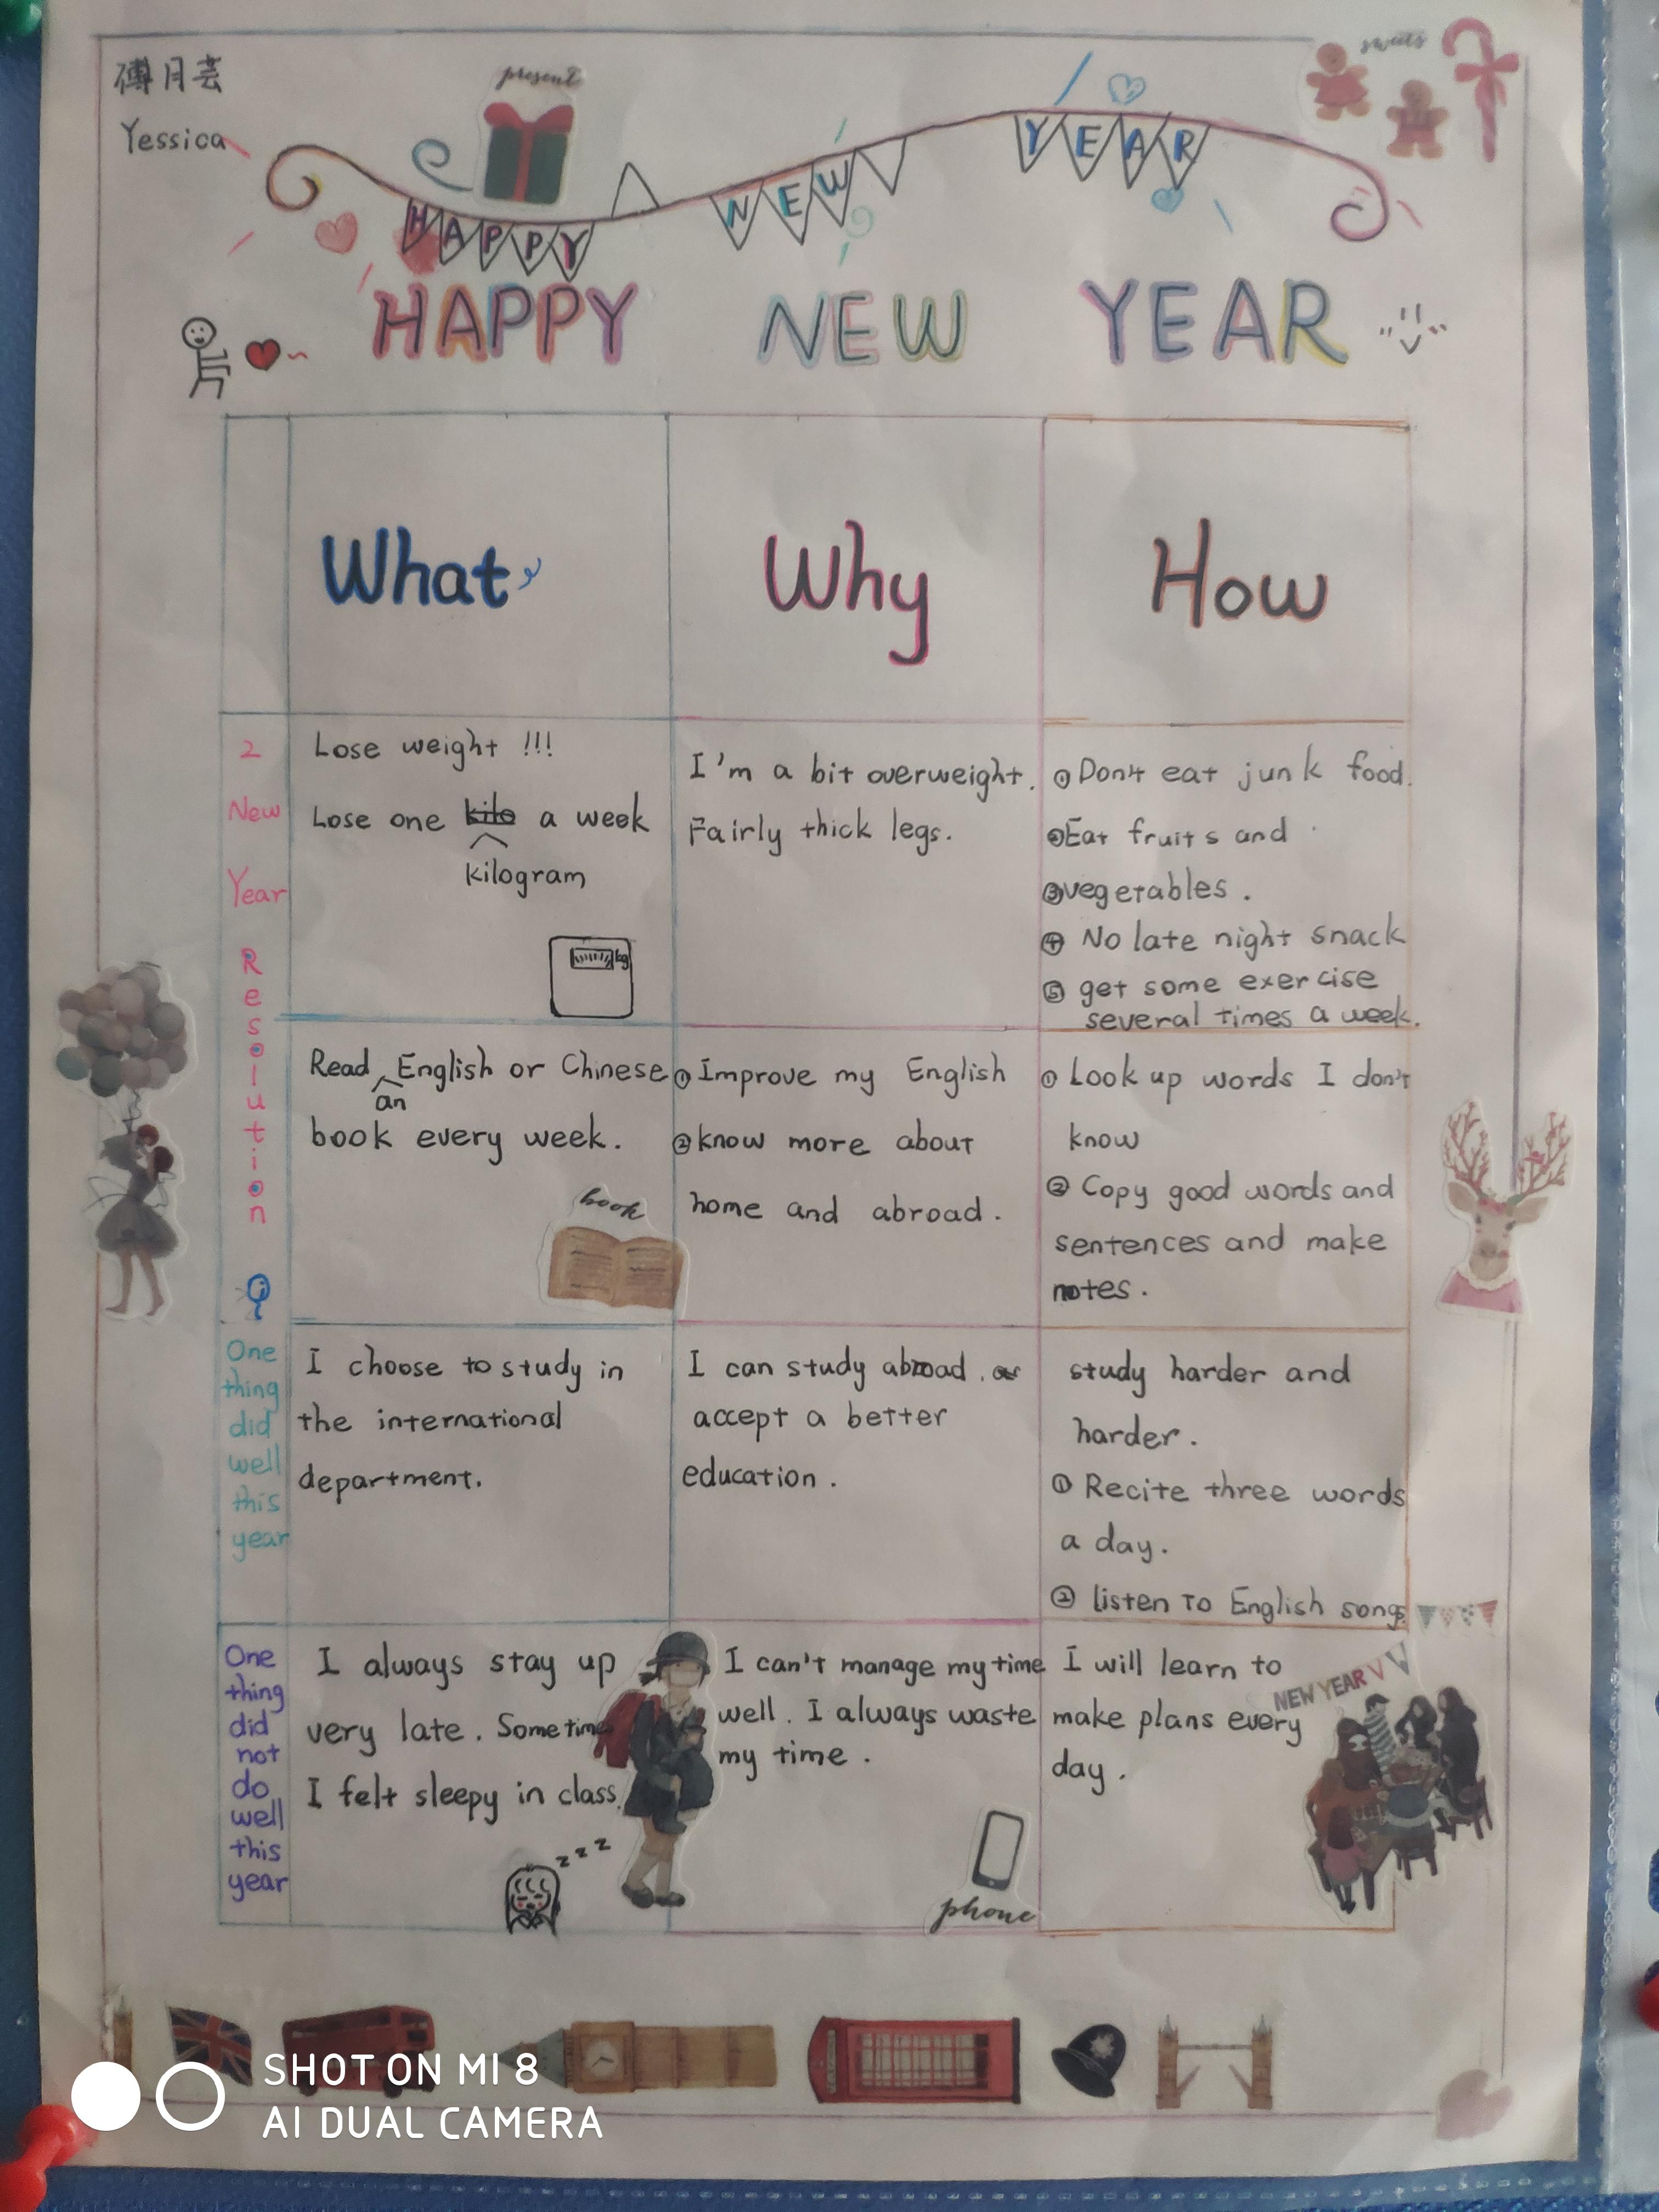 傅月芸
Yessica
present
sweets
HAPPY NEW YEAR
HAPPY NEW YEAR
What
Why
How
2
New
Year
Resolution
Lose weight !!!
Lose one kilo a week
kilogram
kg
I'm a bit overweight.
Fairly thick legs.
① Don't eat junk food.
②Eat fruits and
③vegetables.
④ No late night snack
⑤ get some exercise
several times a week.
Read English or Chinese
an
book every week.
book
① Improve my English
②know more about
home and abroad.
① Look up words I don't
know
② Copy good words and
sentences and make
notes.
One
thing
did
well
this
year
I choose to study in
the international
department.
I can study abroad.
accept a better
education.
study harder and
harder.
① Recite three words
a day.
② listen to English songs
One
thing
did
not
do
well
this
year
I always stay up
very late. Sometime
I felt sleepy in class.
z z z
I can't manage my time
well. I always waste
my time.
phone
I will learn to
make plans every
day.
NEW YEAR
SHOT ON MI 8
AI DUAL CAMERA